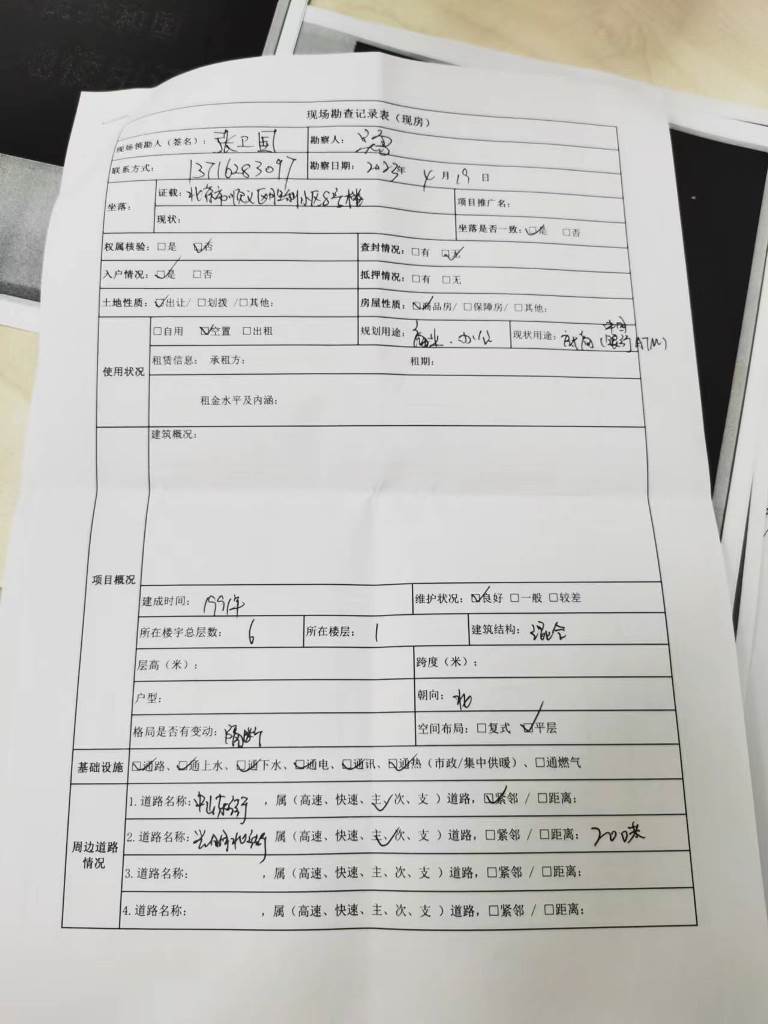 现场勘查记录表(现房)
现场领勘人(签名): 张卫国 勘察人:
联系方式: 13716283097 勘察日期: 2023年 4 月 19 日
坐落: 证载: 北京市顺义区胜利小区8号楼 项目推广名:
现状: 坐落是否一致: ☑是 □否
权属核验: □是 ☑否 查封情况: □有 ☑无
入户情况: ☑是 □否 抵押情况: □有 □无
土地性质: ☑出让/ □划拨 /□其他: 房屋性质: ☑商品房/ □保障房/ □其他:
使用状况 □自用 ☑空置 □出租 规划用途: 商业、办公 现状用途: (中国银行ATM)
租赁信息: 承租方: 租期:
租金水平及内涵:
项目概况 建筑概况:
建成时间: 1991年 维护状况: ☑良好 □一般 □较差
所在楼宇总层数: 6 所在楼层: 1 建筑结构: 混合
层高(米): 跨度(米):
户型: 朝向: 北
格局是否有变动: 隔断 空间布局: □复式 ☑平层
基础设施 ☑通路、☑通上水、☑通下水、☑通电、☑通讯、☑通热(市政/集中供暖)、□通燃气
周边道路情况 1.道路名称: ,属(高速、快速、主✓、次、支 )道路,☑紧邻 / □距离:
2.道路名称: 属(高速、快速、主✓、次、支 )道路,□紧邻 / □距离: 200米
3.道路名称: ,属(高速、快速、主、次、支 )道路,□紧邻 / □距离:
4.道路名称: ,属(高速、快速、主、次、支 )道路,□紧邻 / □距离: